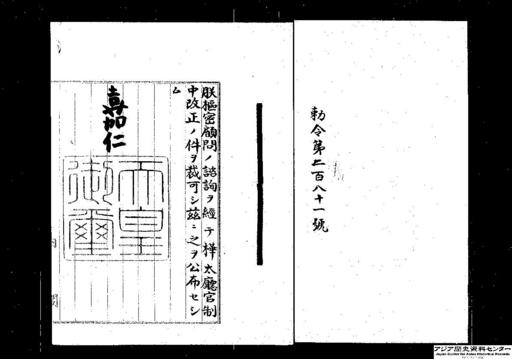 勅令第二百八十一號
朕樞密顧問ノ諮詢ヲ經テ樺太廳官制
中改正ノ件ヲ裁可シ茲ニ之ヲ公布セシ
ム
嘉仁
天皇
御璽
アジア歴史資料センター
Japan Center for Asian Historical Records